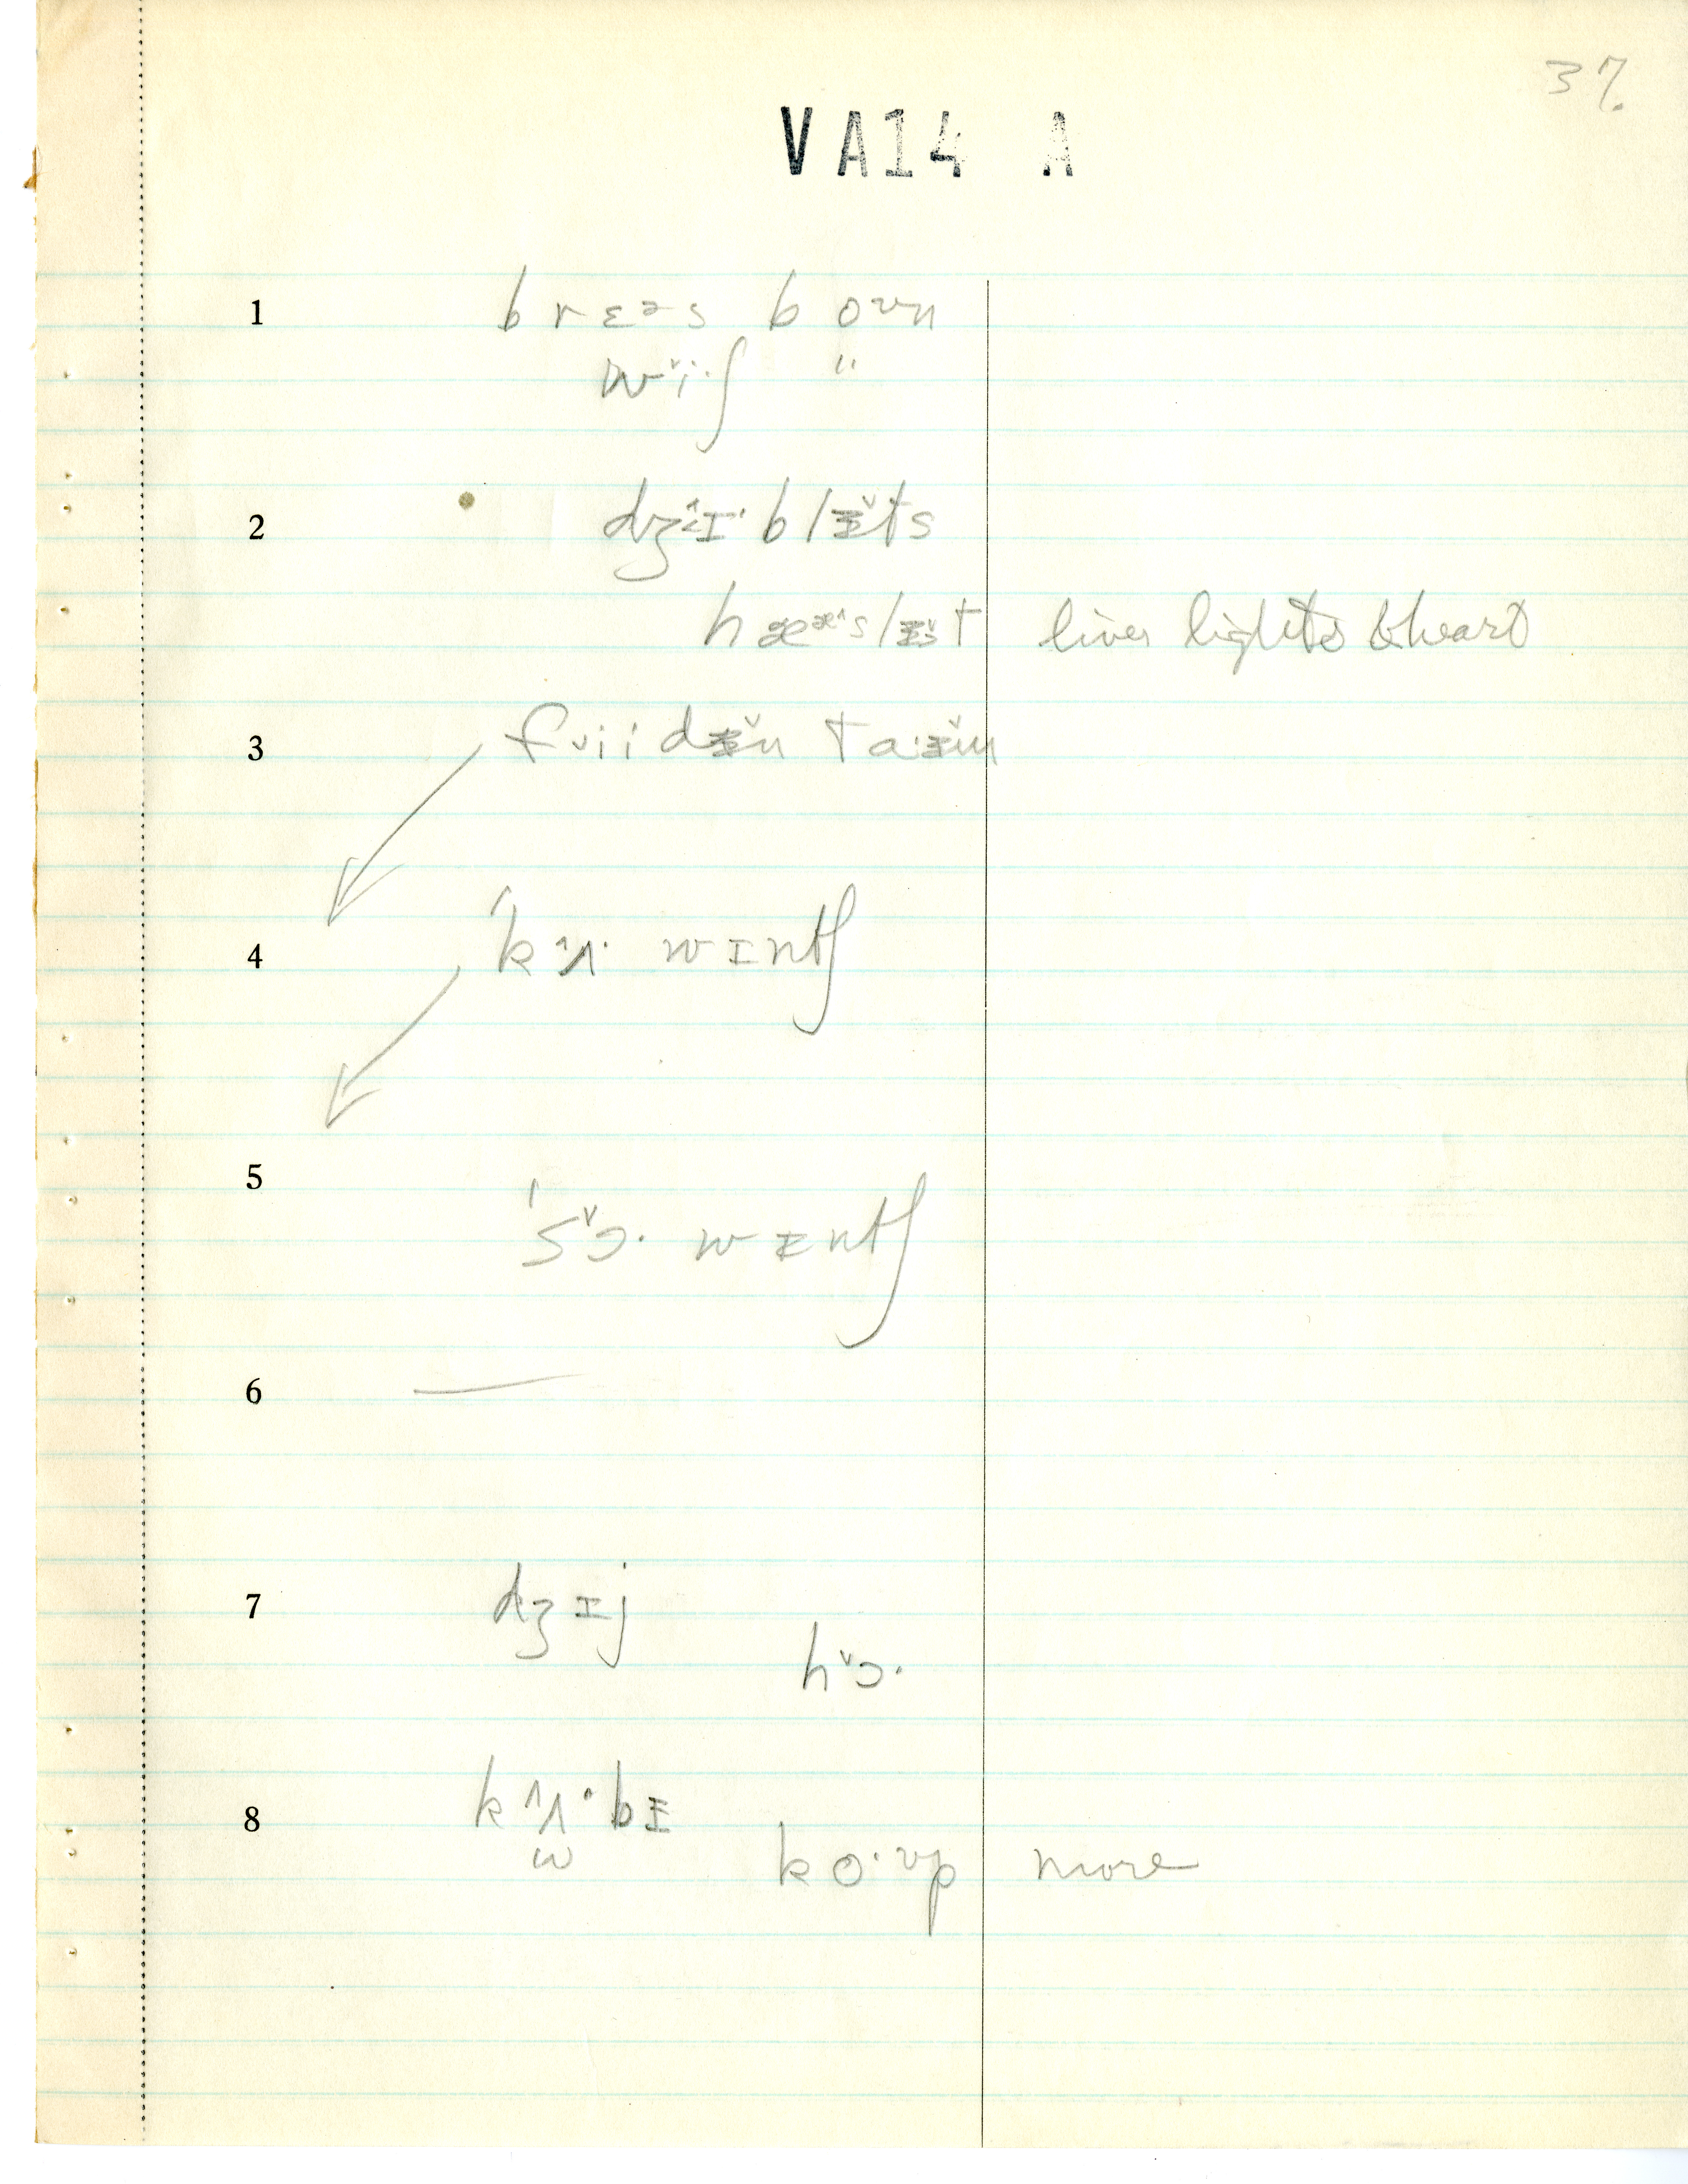 37.
VA14 A
1 brɛəs boʊn
wɪˑʃ "
2 dʒɪˑblɪ̵ts
hæsəlɪ̵t liver lights & heart
3 fiidɪ̵n taɪ̵m
4 ˈkʌˑ wɪntʃ
5 ˈsɔˑ wɪ̵ntʃ
6 —
7 dʒɪj
hɔˑ
8 kʌˑbɪ̵
w
koˑʊp more